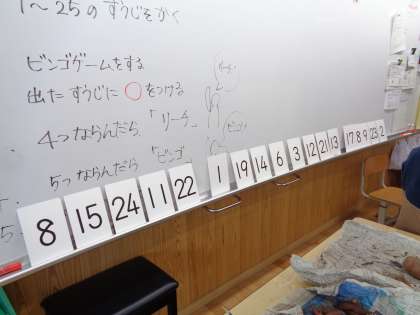 1～25のすうじをかく
ビンゴゲームをする
出たすうじに○をつける
4つならんだら 「リーチ」
5つならんだら 「ビンゴ
8 15 24 11 22 1 19 14 6 3 12 21 13 17 8 9 23 2